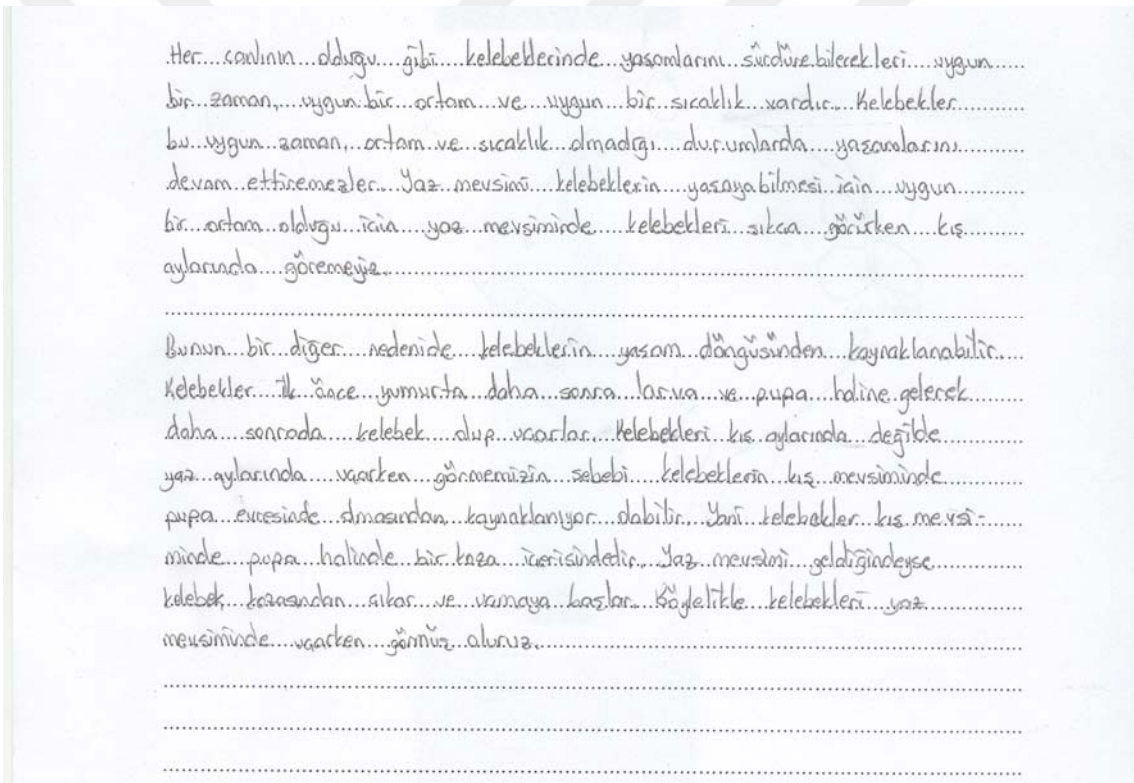 Her canlının olduğu gibi kelebeklerinde yaşamlarını sürdürebilecekleri uygun
bir zaman, uygun bir ortam ve uygun bir sıcaklık vardır. Kelebekler
bu uygun zaman, ortam ve sıcaklık olmadığı durumlarda yaşamlarını
devam ettiremezler. Yaz mevsimi kelebeklerin yaşayabilmesi için uygun
bir ortam olduğu için yaz mevsiminde kelebekleri sıkça görürken kış
aylarında göremeyiz.
Bunun bir diğer nedenide kelebeklerin yaşam döngüsünden kaynaklanabilir.
Kelebekler ilk önce yumurta daha sonra larva ve pupa haline gelerek
daha sonrada kelebek olup uçarlar. Kelebekleri kış aylarında değilde
yaz aylarında uçarken görmemizin sebebi kelebeklerin kış mevsiminde
pupa evresinde olmasından kaynaklanıyor olabilir. Yani kelebekler kış mevsi-
minde pupa halinde bir koza içerisindedir. Yaz mevsimi geldiğindeyse
kelebek kozasından çıkar ve uçmaya başlar. Böylelikle kelebekleri yaz
mevsiminde uçarken görmüş oluruz.